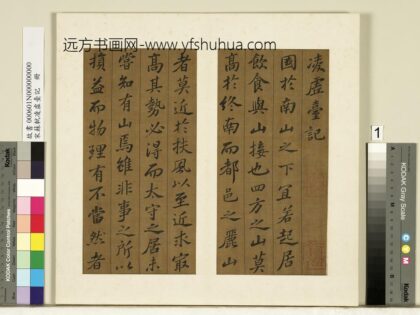 远方书画网-www.yfshuhua.com
凌虛臺記
國於南山之下宜若起居
飲食與山接也四方之山莫
高於終南而都邑之麗山
者莫近於扶風以至近求最
高其勢必得而太守之居未
嘗知有山焉雖非事之所以
損益而物理有不當然者
故書000601N000000000
宋蘇軾凌虛臺記 冊
1
Kodak
KODAK Gray Scale
KODAK Color Control Patches